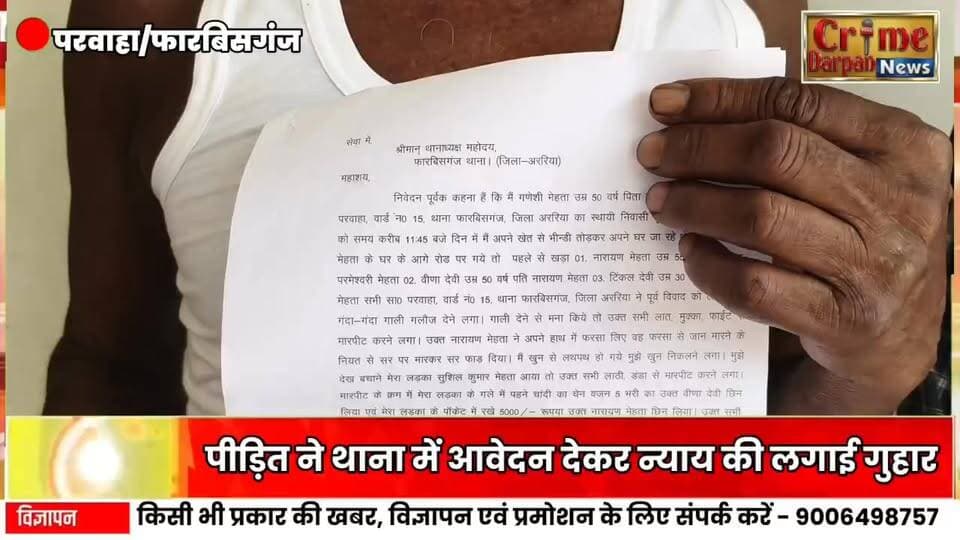 परवाहा/फारबिसगंज
Crime
Darpan News
सेवा में,
श्रीमान् थानाध्यक्ष महोदय,
फारबिसगंज थाना। (जिला-अररिया)
महाशय,
निवेदन पूर्वक कहना हैं कि मैं गणेशी मेहता उम्र 50 वर्ष पिता
परवाहा, वार्ड नं0 15, थाना फारबिसगंज, जिला अररिया का स्थायी निवासी
को समय करीब 11:45 बजे दिन में मैं अपने खेत से भीन्डी तोड़कर अपने घर जा रहे
मेहता के घर के आगे रोड पर गये तो पहले से खड़ा 01. नारायण मेहता उम्र
परमेश्वरी मेहता 02. वीणा देवी उम्र 50 वर्ष पति नारायण मेहता 03. टिंकल देवी उम्र 30
मेहता सभी सा0 परवाहा, वार्ड नं0 15, थाना फारबिसगंज, जिला अररिया ने पूर्व विवाद को
गंदा-गंदा गाली गलौज देने लगा। गाली देने से मना किये तो उक्त सभी लात, मुक्का, फाईट
मारपीट करने लगा। उक्त नारायण मेहता ने अपने हाथ में फरसा लिए वह फरसा से जान मारने के
नियत से सर पर मारकर सर फाड़ दिया। मैं खुन से लथपथ हो गये मुझे खुन निकलने लगा। मुझे
देख बचाने मेरा लड़का सुशिल कुमार मेहता आया तो उक्त सभी लाठी, डंडा से मारपीट करने लगा।
मारपीट के क्रम में मेरा लड़का के गले में पहने चांदी का चेन वजन 5 भरी का उक्त वीणा देवी छिन
लिया एवं मेरा लड़का के पॉकेट में रखे 5000/- रूपया उक्त नारायण मेहता छिन लिया। उक्त सभी
पीड़ित ने थाना में आवेदन देकर न्याय की लगाई गुहार
विज्ञापन किसी भी प्रकार की खबर, विज्ञापन एवं प्रमोशन के लिए संपर्क करें - 9006498757